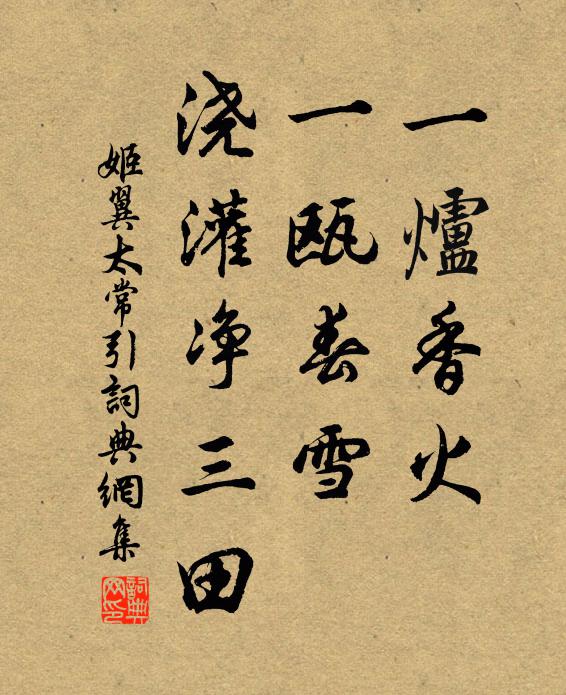 一爐香火
一甌春雪
浇灌净三田
姬翼太常引詞典網集
詞典网印